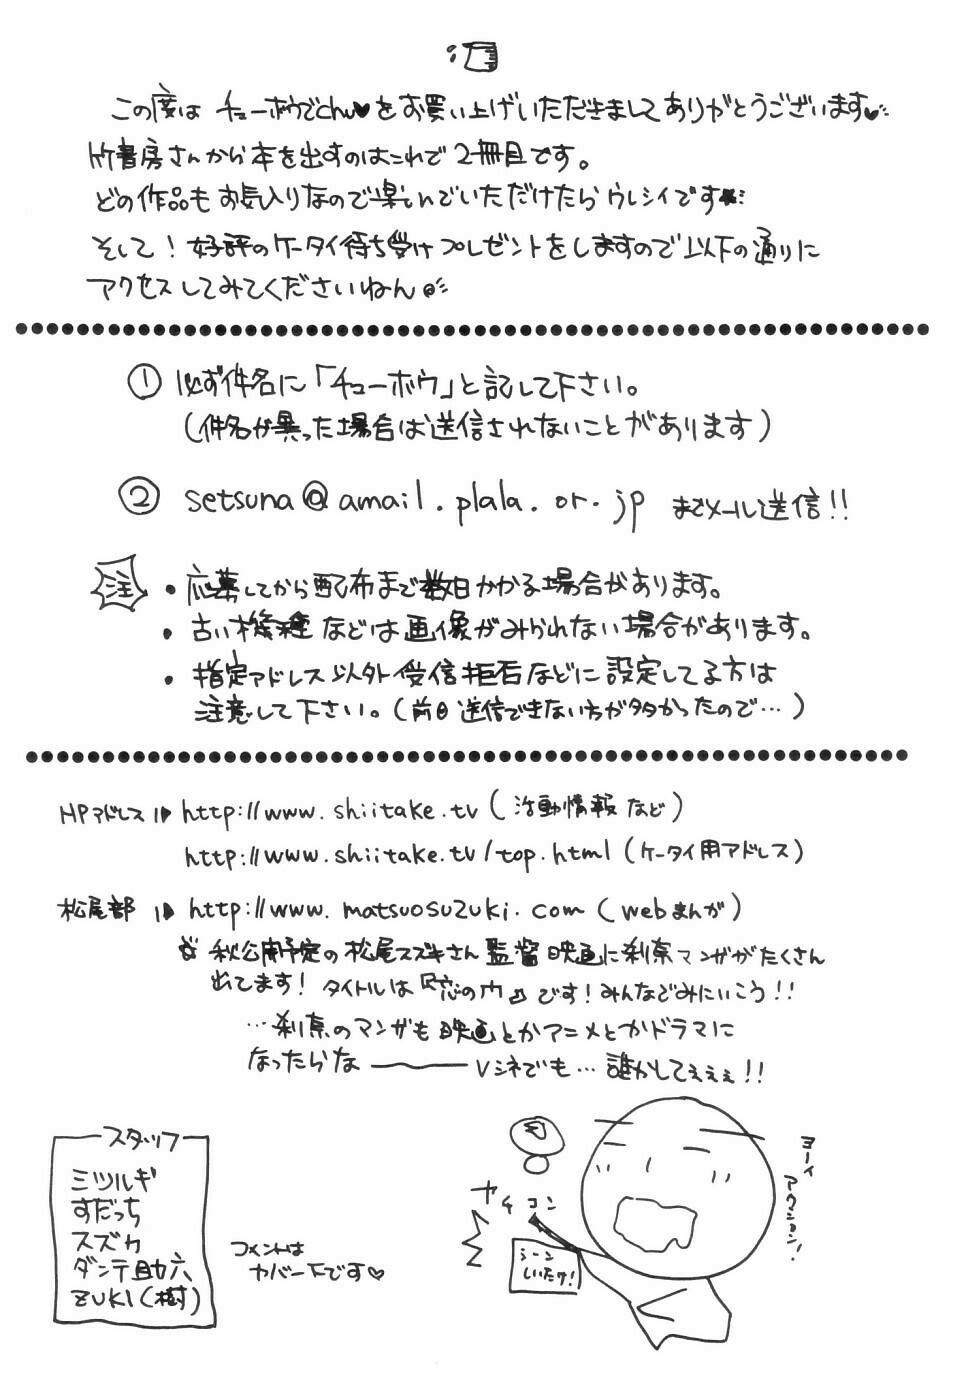 この度は チューボウでchu♥をお買い上げいただきましてありがとうございます♥
竹書房さんから本を出すのはこれで2冊目です。
どの作品もお気入りなので楽しんでいただけたらウレシイです★
そして！好評のケータイ待ち受けプレゼントをしますので以下の通りに
アクセスしてみてくださいねん
① 必ず件名に「チューボウ」と記して下さい。
(件名が異った場合は送信されないことがあります)
② setsuna@amail.plala.or.jp までメール送信!!
注 ・応募してから配布まで数日かかる場合があります。
・古い機種などは画像がみられない場合があります。
・指定アドレス以外受信拒否などに設定してる方は
注意して下さい。(前回送信できない方が多かったので…)
HPアドレス http://www.shiitake.tv (活動情報など)
http://www.shiitake.tv/top.html (ケータイ用アドレス)
松尾部 http://www.matsuosuzuki.com (webまんが)
秋公開予定の松尾スズキさん監督映画に刹奈マンガがたくさん
出てます！タイトルは『恋の門』です！みんなでみにいこう!!
…刹奈のマンガも映画とかアニメとかドラマに
なったらな―――Vシネでも…誰かしてぇぇぇ!!
スタッフ
ミツルギ
すだっち
スズカ
ダンテ助六
ZUKI(樹)
コメントは
カバー下です♡
カチコン
シーン
しいたけ!
ヨーイ
アクション!